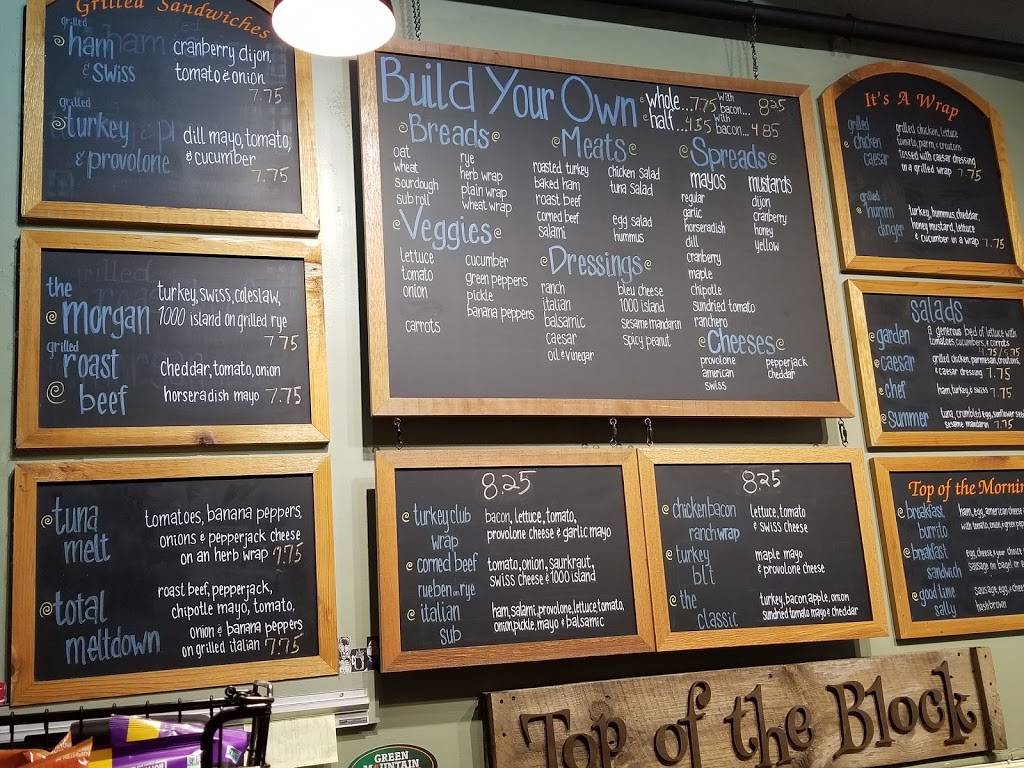 Grilled Sandwiches
grilled
ham
& swiss
cranberry dijon,
tomato & onion
7.75
grilled
turkey
& provolone
dill mayo, tomato,
& cucumber
7.75
the
morgan
turkey, swiss, coleslaw,
1000 island on grilled rye
7.75
grilled
roast
beef
cheddar, tomato, onion
horseradish mayo 7.75
tuna
melt
tomatoes, banana peppers,
onions & pepperjack cheese
on an herb wrap 7.75
total
meltdown
roast beef, pepperjack,
chipotle mayo, tomato,
onion & banana peppers
on grilled italian 7.75
Build Your Own
whole...7.75 with bacon... 8.25
half...4.35 with bacon... 4.85
Breads
oat
wheat
sourdough
sub roll
rye
herb wrap
plain wrap
wheat wrap
Veggies
lettuce
tomato
onion
carrots
cucumber
green peppers
pickle
banana peppers
Meats
roasted turkey
baked ham
roast beef
corned beef
salami
chicken salad
tuna salad
egg salad
hummus
Dressings
ranch
italian
balsamic
caesar
oil & vinegar
bleu cheese
1000 island
sesame mandarin
spicy peanut
Spreads
mayos
regular
garlic
horseradish
dill
cranberry
maple
chipotle
sundried tomato
ranchero
mustards
dijon
cranberry
honey
yellow
Cheeses
provolone
american
swiss
pepperjack
cheddar
8.25
turkey club
wrap
bacon, lettuce, tomato,
provolone cheese & garlic mayo
corned beef
rueben on rye
tomato, onion, saurkraut,
swiss cheese & 1000 island
italian
sub
ham, salami, provolone, lettuce, tomato,
onion, pickle, mayo & balsamic
8.25
chicken bacon
ranch wrap
lettuce, tomato
& swiss cheese
turkey
blt
maple mayo
& provolone cheese
the
classic
turkey, bacon, apple, onion
sundried tomato mayo & cheddar
It's A Wrap
grilled
chicken
caesar
grilled chicken, lettuce
tomato, parm & croutons
tossed with caesar dressing
in a grilled wrap 7.75
grilled
humm
dinger
turkey, hummus, cheddar,
honey mustard, lettuce
& cucumber in a wrap 7.75
salads
garden
a generous bed of lettuce with
tomatoes, cucumbers, & carrots
4.75/5.75
caesar
grilled chicken, parmesan, croutons,
& caesar dressing 7.75
chef
ham, turkey, & swiss 7.75
summer
tuna, crumbled egg, sunflower see
sesame mandarin 7.75
Top of the Mornin
breakfast
burrito
ham, egg, american cheese
with tomato, onion & green pep
breakfast
sandwich
egg, cheese & your choice
sausage on bagel or
good time
sally
sausage, egg, & chee
hashbrown
Top of the Block
GREEN
MOUNTAIN